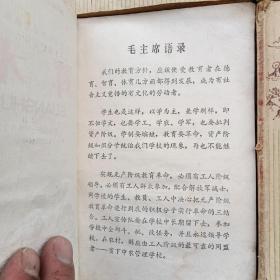 毛主席语录
我们的教育方针，应该使受教育者在德
育、智育、体育几方面都得到发展，成为有社
会主义觉悟的有文化的劳动者。
学生也是这样，以学为主，兼学别样，即
不但学文，也要学工、学农、学军，也要批判
资产阶级。学制要缩短，教育要革命，资产阶
级知识分子统治我们学校的现象，再也不能继
续下去了。
实现无产阶级教育革命，必须有工人阶级
领导，必须有工人群众参加，配合解放军战士，
同学校的学生、教员、工人中决心把无产阶级
教育革命进行到底的积极分子实行革命的三结
合。工人宣传队要在学校中长期留下去，参加
学校中全部斗、批、改任务，并且永远领导学
校。在农村，则应由工人阶级的最可靠的同盟
者——贫下中农管理学校。